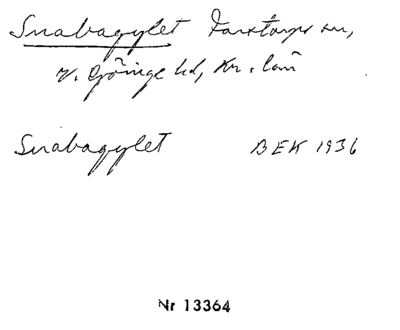 Snabagylet Farstorps sn,
V. Göinge hd, Kr. län
Snabagylet BEK 1936
Nr 13364